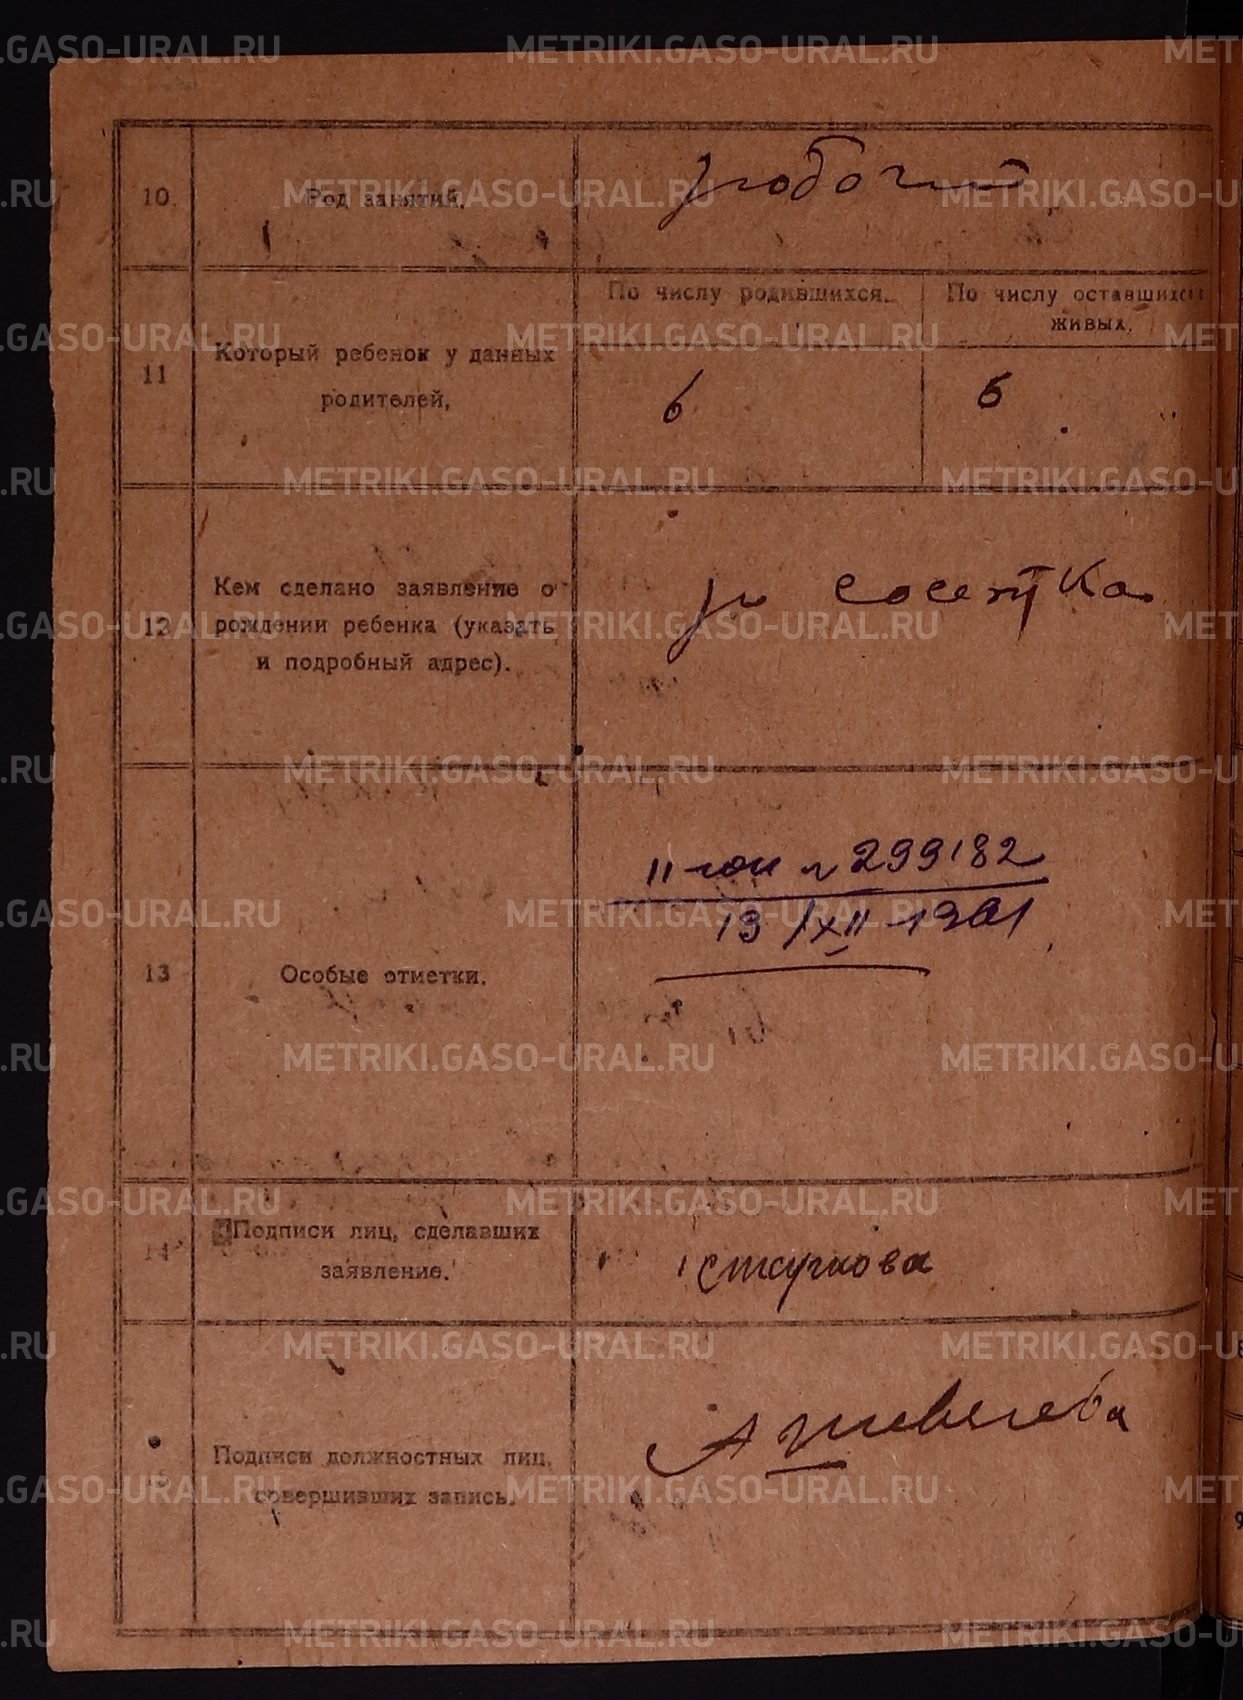 10.
Род занятий.
рабочий
11
Который ребенок у данных
родителей.
По числу родившихся.
По числу оставшихся
живых.
6
5
12
Кем сделано заявление о
рождении ребенка (указать
и подробный адрес).
соседка
13
Особые отметки.
№ 299182
13/XII
14
Подписи лиц, сделавших
заявление.
Подписи должностных лиц,
совершивших запись.
METRIKI.GASO-URAL.RU